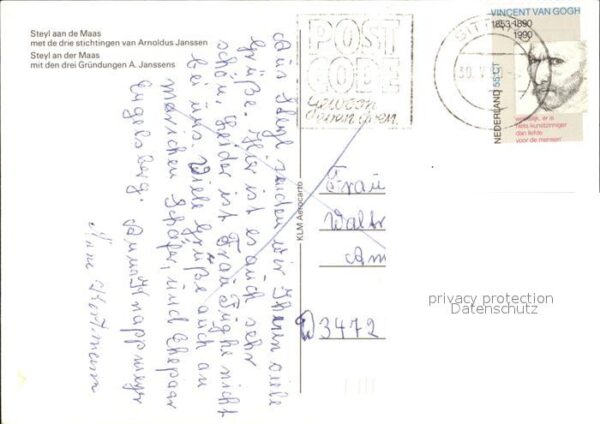 Steyl aan de Maas
met de drie stichtingen van Arnoldus Janssen
Steyl an der Maas
mit den drei Gründungen A. Janssens
Aus Steyl senden wir Ihnen viele
Grüße. Hier ist es auch sehr
schön, leider ist Frau Füghe nicht
bei uns. Viele Grüße auch an
Mariechen Schäfer, und Ehepaar
Engelsberg. Anna Knappmeyer
Anne
KLM Aerocarto
POST
CODE
gewoon
SITT
30. V
VINCENT VAN GOGH
1853-1890
1990
NEDERLAND 55 CT
werkelijk, er is
niets kunstzinniger
dan liefde
voor de mensen
Frau
Walt
Am
D 3472
privacy protection
Datenschutz